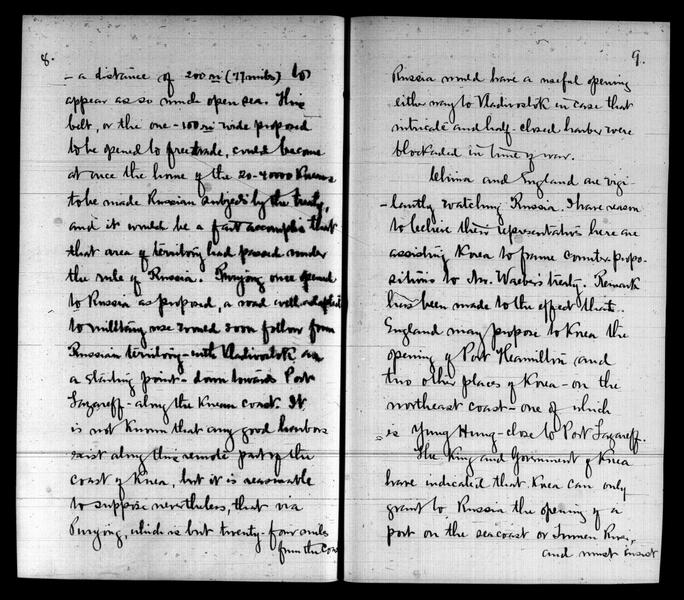 8.
- a distance of 200 ri (77 miles) to
appear as so much open sea. This
belt, or the one - 100 ri wide proposed
to be opened to free trade, could become
at once the home of the 20-40000 Koreans
to be made Russian subjects by the treaty,
and it would be a fait accompli that
that area of territory had passed under
the rule of Russia. Punyong once opened
to Russia as proposed, a road well adapted
to military use would soon follow from
Russian territory - with Vladivostok as
a starting point - down towards Port
Lazareff - along the Korean coast. It
is not known that any good harbors
exist along this remote part of the
coast of Korea, but it is reasonable
to suppose nevertheless, that via
Punyong, which is but twenty-four miles
from the coast
9.
Russia would have a useful opening
either way to Vladivostok in case that
intricate and half-closed harbor were
blockaded in time of war.
China and England are vigi-
-lantly watching Russia. I have reason
to believe their representatives here are
assisting Korea to frame counter-propo-
sitions to Mr. Waeber's treaty. Remark
has been made to the effect that
England may propose to Korea the
opening of Port Hamilton and
two other places of Korea - on the
northeast coast - one of which
is Yung Hung - close to Port Lazareff.
The King and Government of Korea
have indicated that Korea can only
grant to Russia the opening of a
port on the seacoast or Tumen River,
and must insist